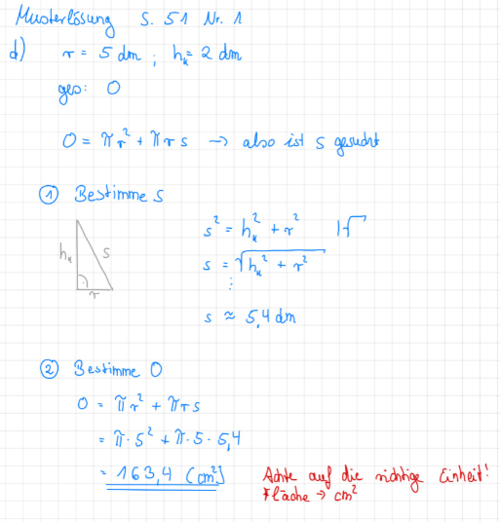 Musterlösung S. 51 Nr. 1
d) r = 5 dm ; hₖ = 2 dm
ges: O
O = πr² + πrs → also ist s gesucht
① Bestimme s
hₖ s
r
s² = hₖ² + r² |√
s = √hₖ² + r²
⋮
s ≈ 5,4 dm
② Bestimme O
O = πr² + πrs
= π · 5² + π · 5 · 5,4
= 163,4 [cm²]
Achte auf die richtige Einheit!
Fläche → cm²